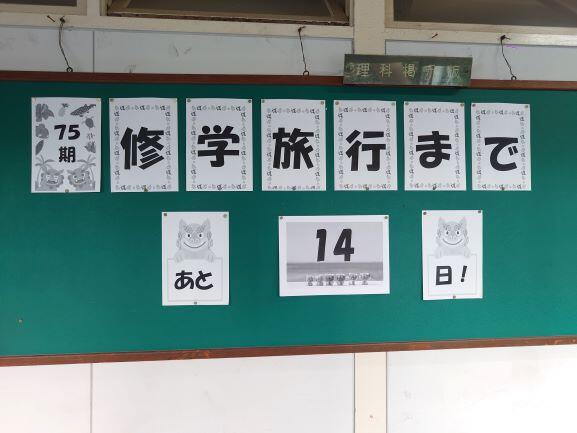 理科掲示板
75期 修学旅行まで
あと 14 日!